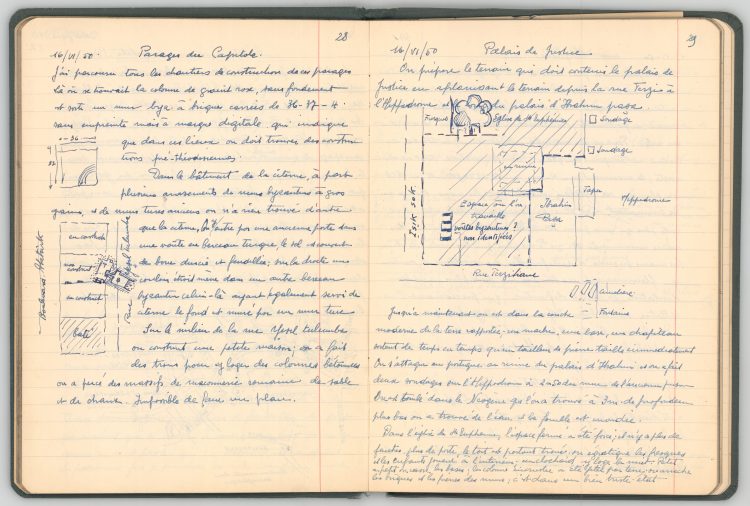 28
16/VI/50. Parages du Capitole.
J'ai parcouru tous les chantiers de construction de ces parages
Là où se trouvait la colonne de granit rose, sans fondement
et sorti un mur byz. à briques carrées de 36-37-4.
sans empreinte mais à marque digitale, qui indique
que dans ces lieux on doit trouver des construc
tions pré-théodosiennes.
36
4
32
Dans le bâtiment de la citerne, à part
plusieurs arasements de murs byzantins à gros
grains, et de murs turcs anciens on n'a rien trouvé d'autre
que la citerne, on y entre par une ancienne porte dans
une voûte en berceau turque, le sol
de boue durcie et fendillée; sur la droite une
couloir étroit mène dans un autre berceau
byzantin celui-là ayant également servi de
citerne le fond est muré par un mur turc
Sur le milieu de la rue Yesel tulumba
on construit une petite maison; on a fait
des trous pour y loger des colonnes bétonnées
on a percé des massifs de maçonnerie romaine de sable
et de chaux. Impossible de faire un plan.
Boulevard Atatürk
en construct
non construit
en construit
bati
Rue Yesel tulumba
29
16/VI/50 Palais de Justice
On prépare le terrain que doit contenir le palais de
Justice en aplanissant le terrain depuis la rue Terzi à
l'Hippodrome et le long du palais d'Ibrahim pasa
Fresques
Eglise de Ste Euphémie
Sondage
Sondage
Tapu
Hippodrome
Işik sok
Espace où l'on
travaille
voûtes byzantines?
non identifiées
Ibrahim
Paşa
Rue Terzihane
Fontaine
Jusqu'à maintenant on est dans la couche
moderne de la terre rapportée, un marbre, une base, un chapiteau
sortent de temps en temps qu'un tailleur de pierre taille immédiatement
On s'attaque au portique en ruine du palais d'Ibrahim et on a fait
deux sondages sur l'Hippodrome à 2m50 du mur de l'ancienne prison
On est tombé dans le Néogène que l'on a trouvé à 3m. de profondeur
plus bas on a trouvé de l'eau et la fouille est inondée.
Dans l'église de Ste Euphémie, l'espace fermé a été forcé; il n'y a plus de
fenêtres, plus de porte, le toit est partout troué, on égratigne les fresques
et les enfants jouent à l'intérieur; un clochard y loge la nuit. Petit
à petit on casse les bases, la colonne a été jetée par terre, on arrache
les briques et les pierres des murs; c'est dans un bien triste état